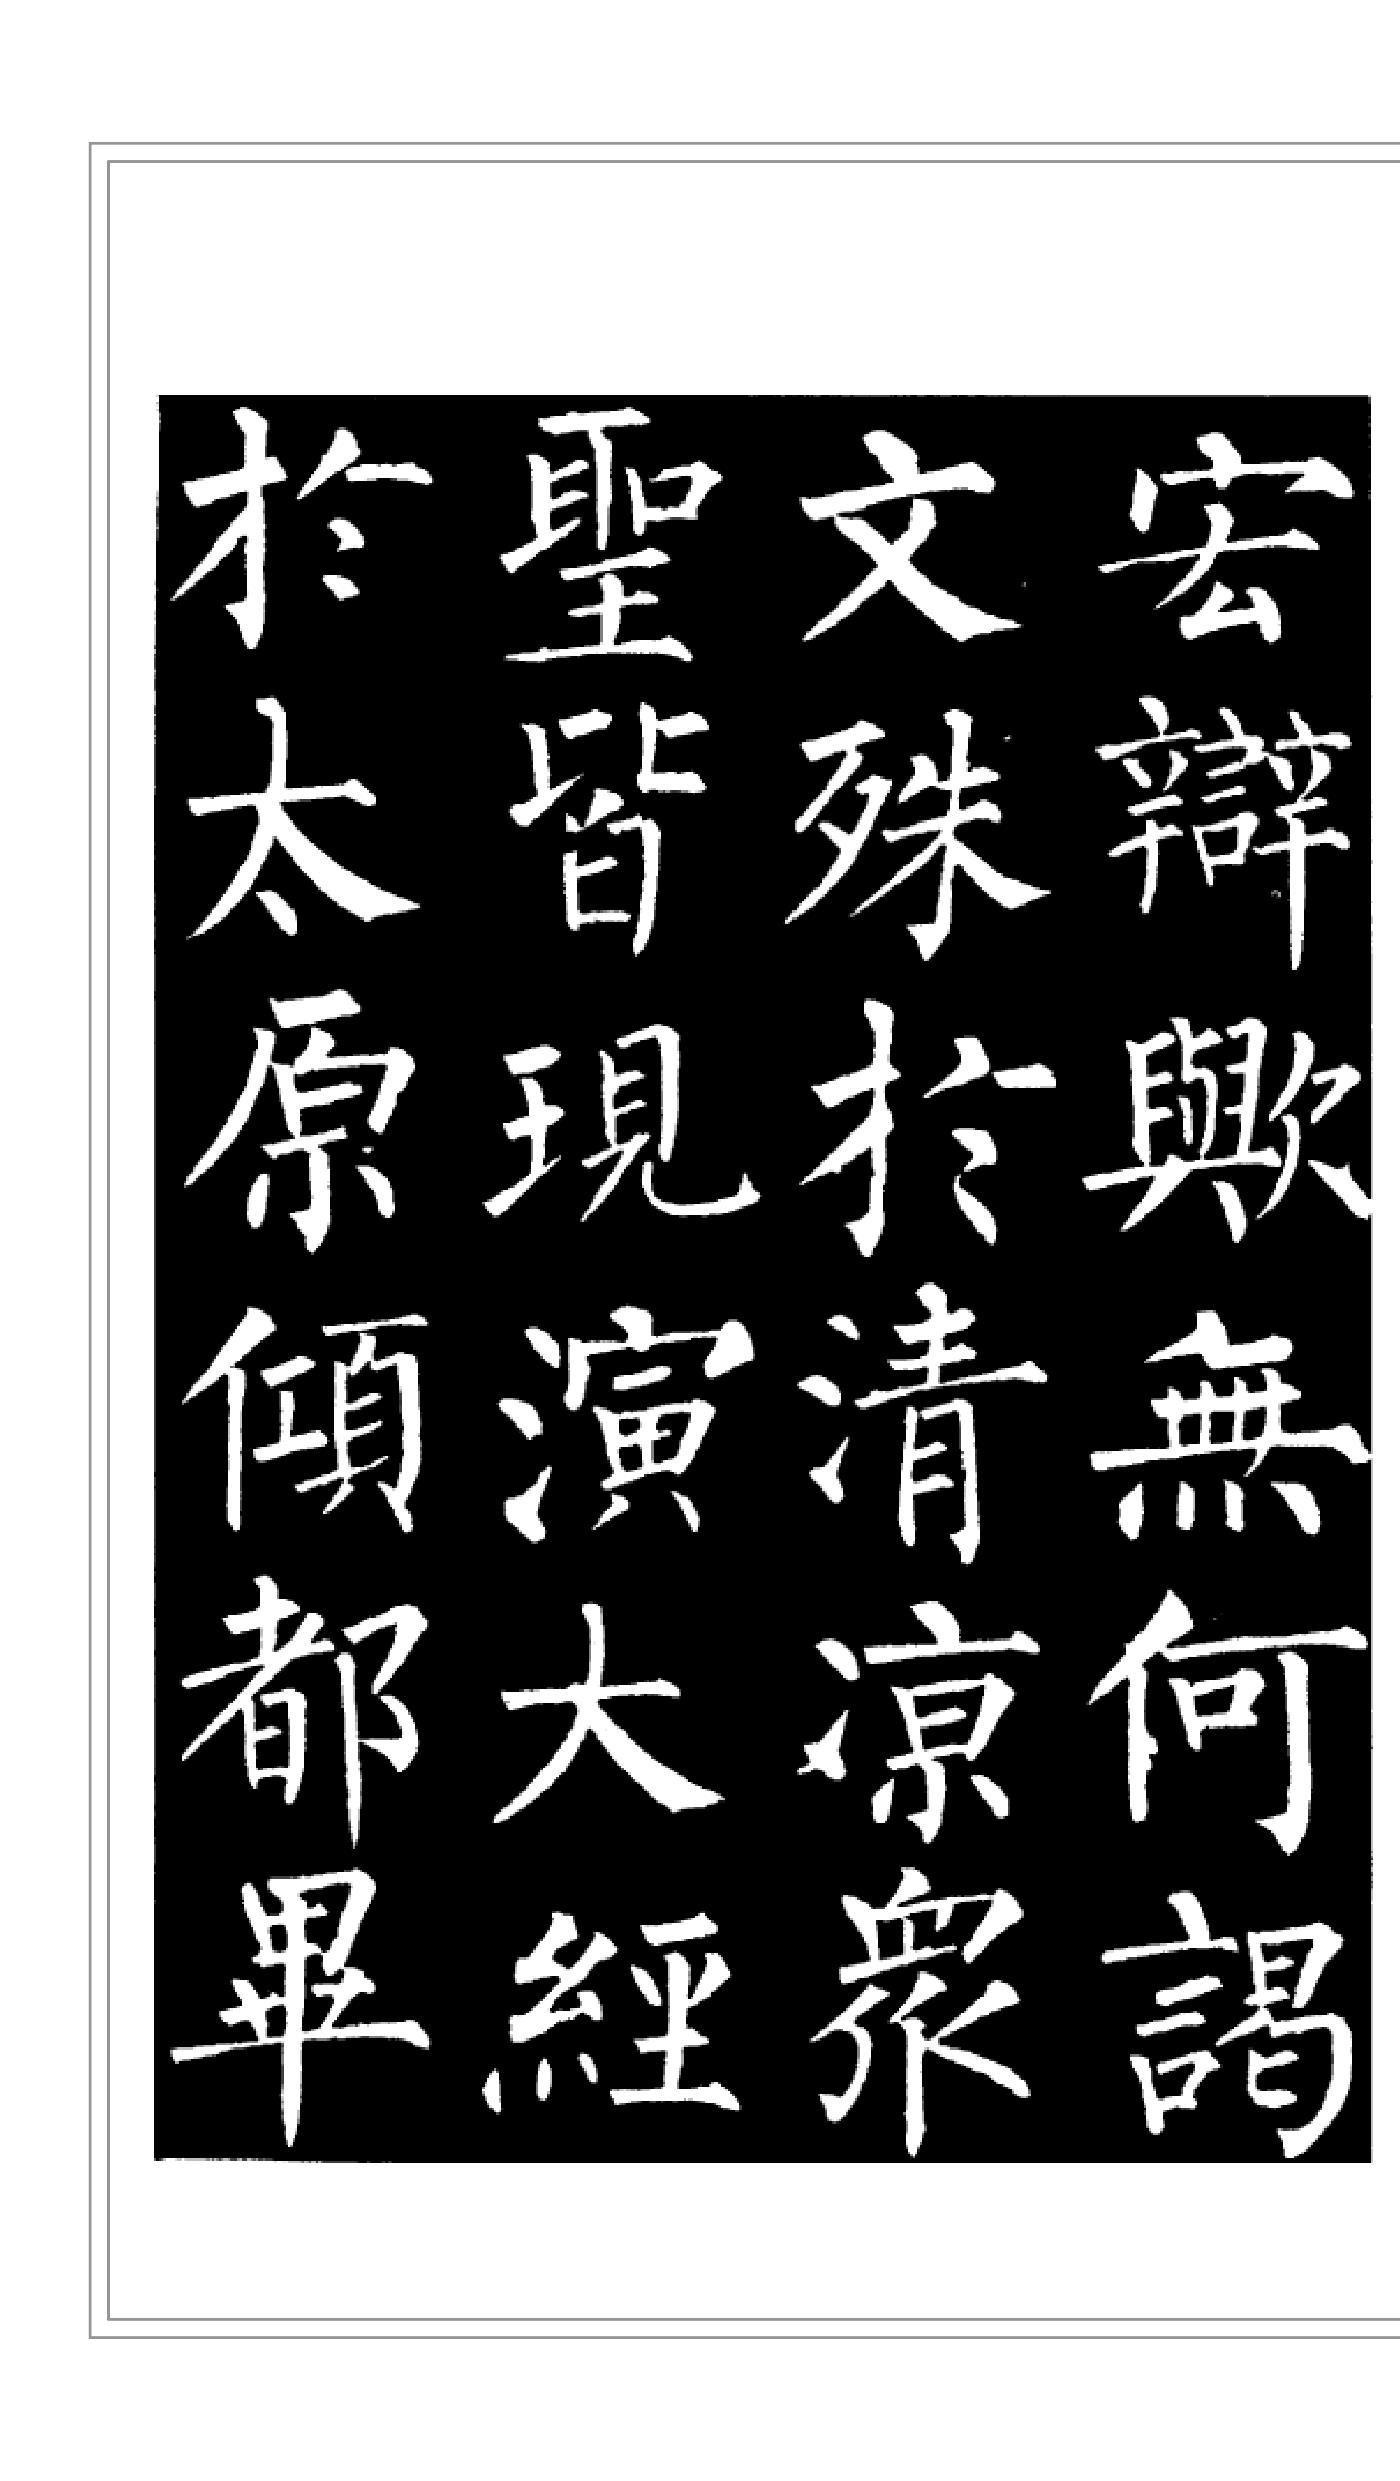 宏辯歟無何謁
文殊於清凉衆
聖皆現演大經
於太原傾都畢